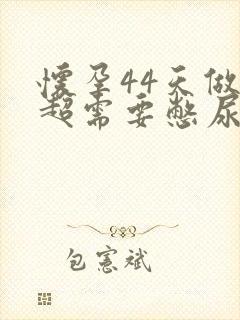 懷孕44天做
超需要憋尿
包憲斌